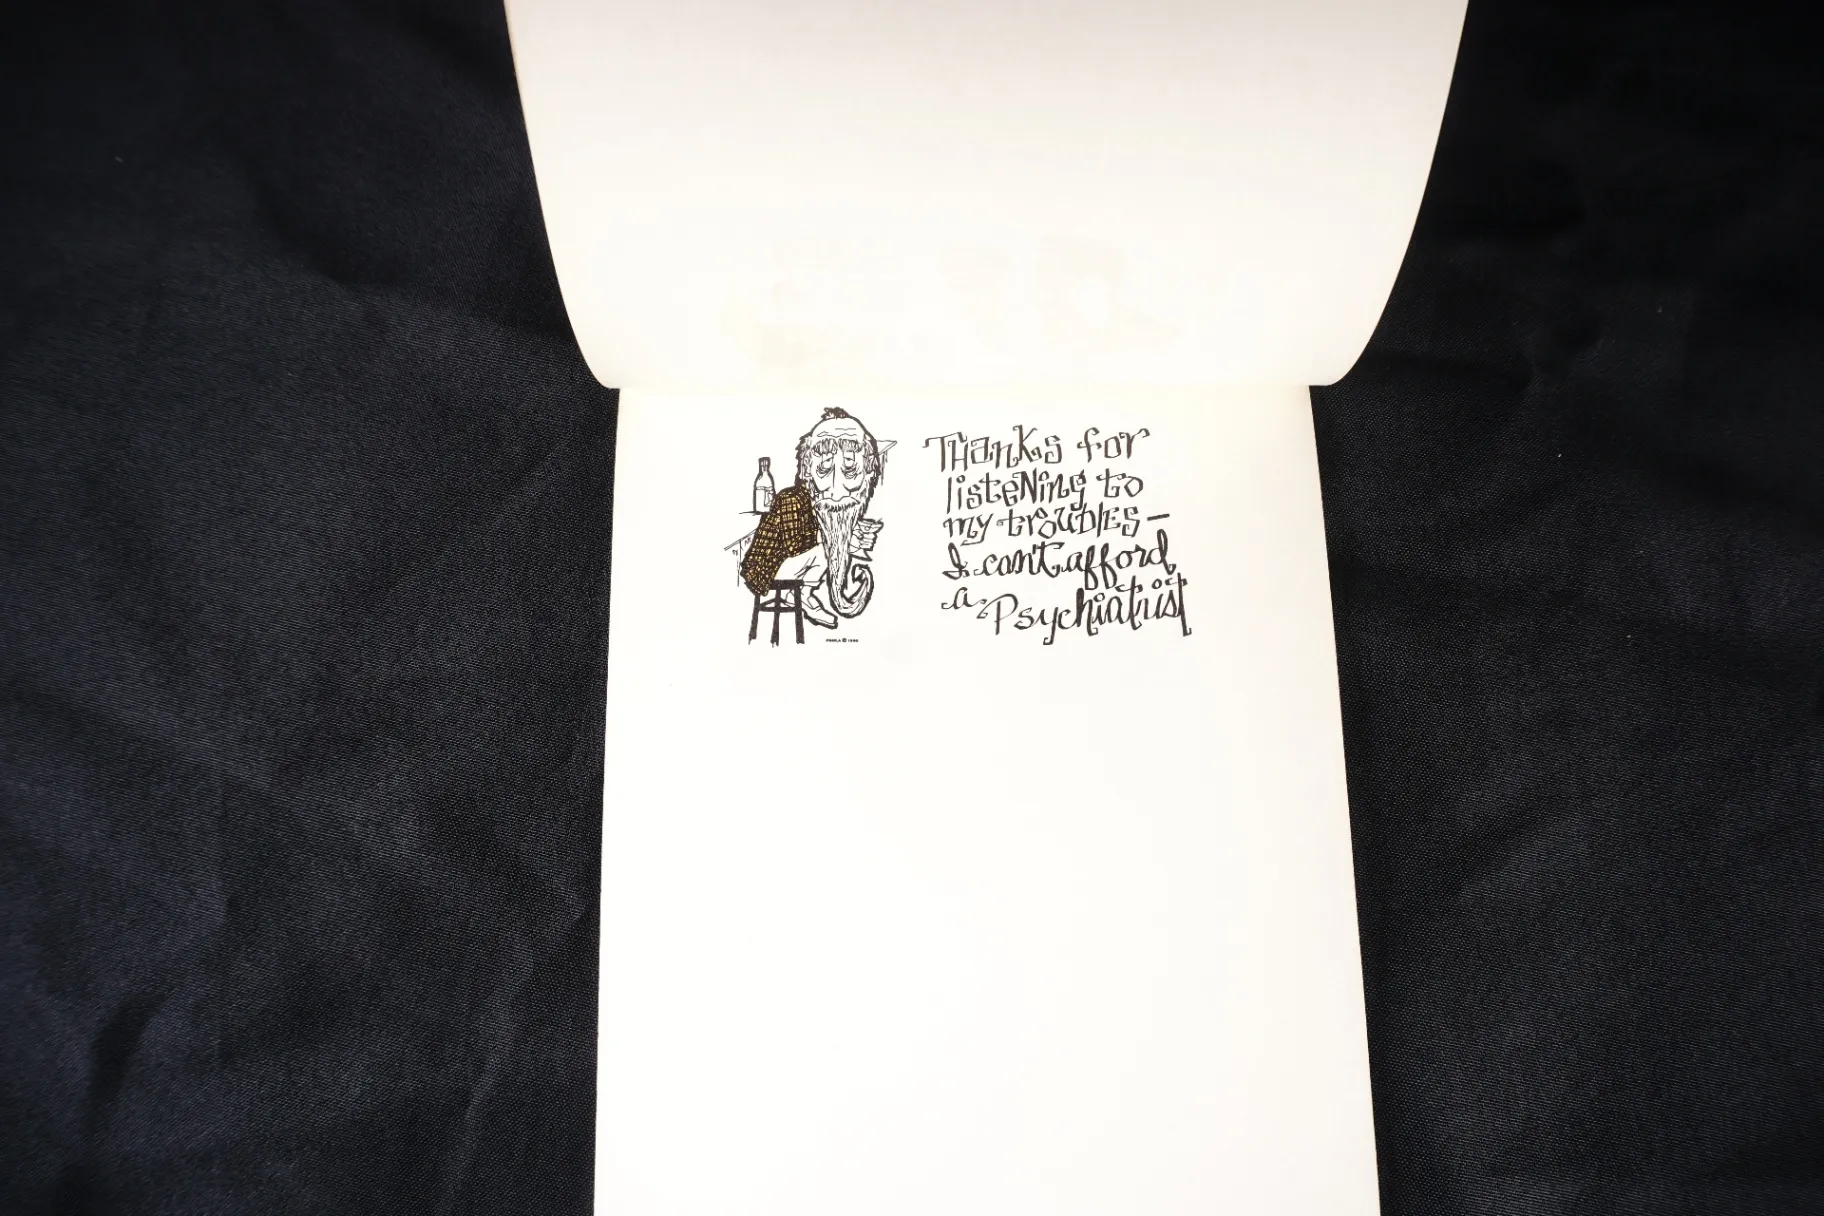 Thanks for
listening to
my troubles —
I can't afford
a Psychiatrist